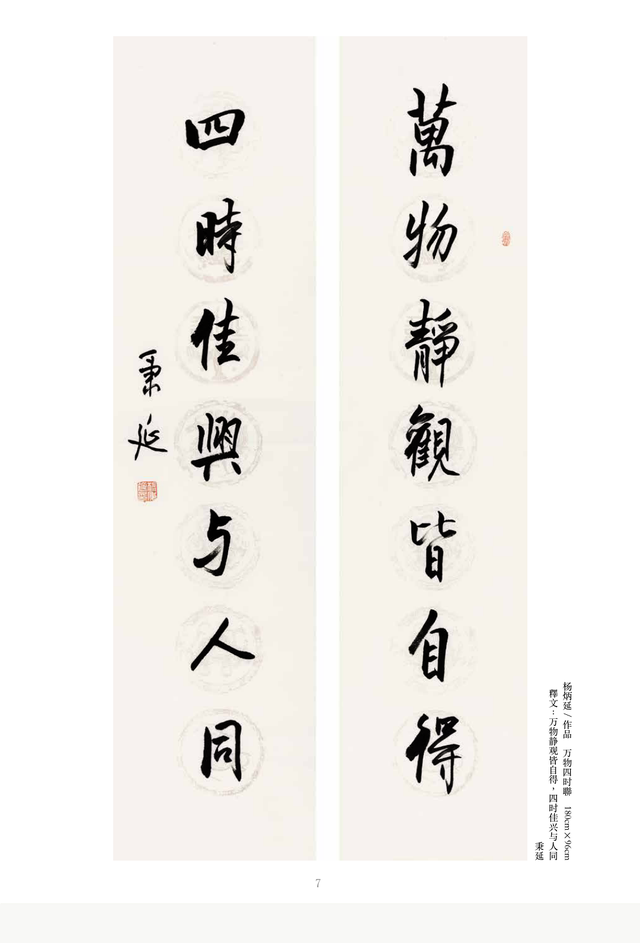 萬物靜觀皆自得
四時佳興与人同
秉延
杨炳延/作品 万物四时聯 180cm×96cm
釋文：万物静观皆自得，四时佳兴与人同
秉延
7